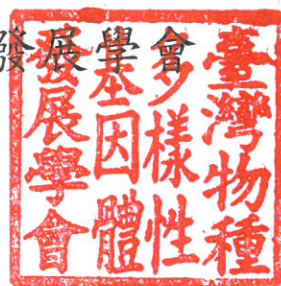 發展學會
臺灣物種
多樣性
基因體
發展學會